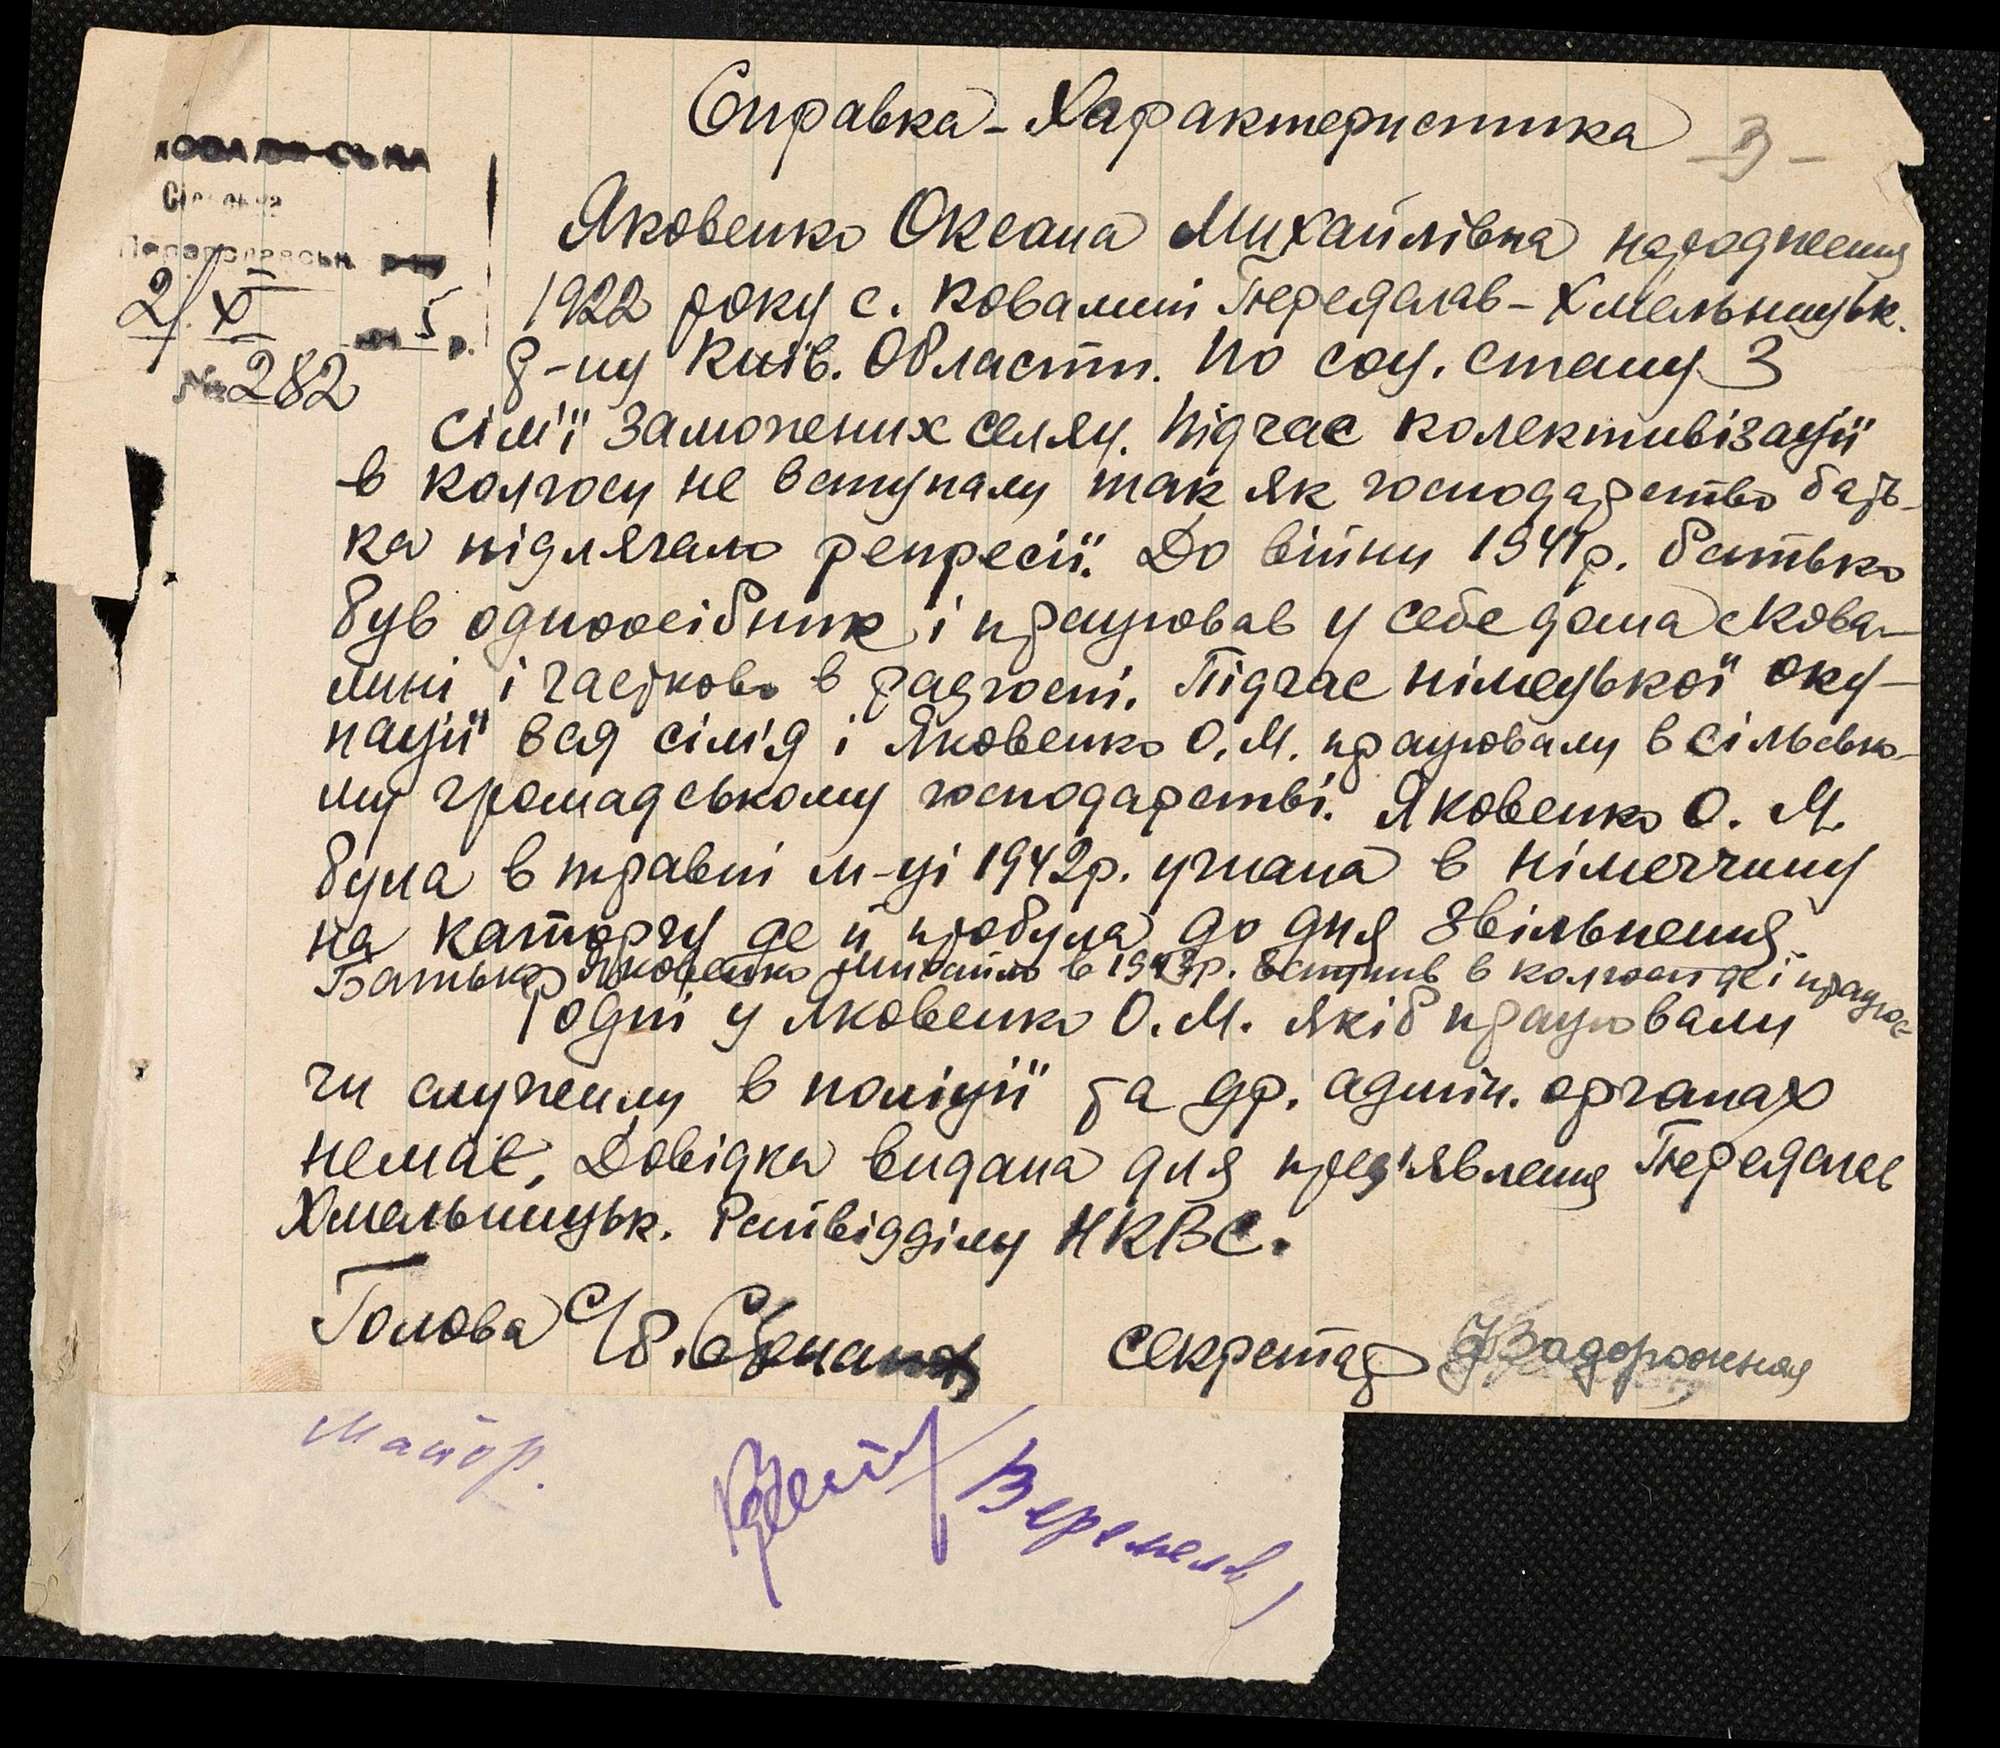 Справка-Характеристика
-3-
Сільська
Переяславськ. р-ну
2/XI 5 р.
№ 282
Яковенко Оксана Михайлівна народження
1922 року с. Ковалині Переяслав-Хмельницьк.
р-ну Київ. Области. По соц. стану З
сім'ї заможених селян. Підчас колективізації
в колгосп не вступали так як господарство бать-
ка підлягало репресії. До війни 1941р. батько
був одноосібник і працював у себе дома с Кова-
лині і частково в радгоспі. Підчас німецької оку-
пації вся сім'я і Яковенко О.М. працювали в сільсько-
му громадському господарстві. Яковенко О. М.
була в травні м-ці 1942р. угнана в Німеччину
на каторгу де й пробула до дня звільнення
Батько Яковенко Михайло в 1943р. вступив в колгосп де і працює
Рідні у Яковенко О.М. якіб працювали
чи служили в поліції та др. адмін. органах
немає, Довідка видана для пред'явлення Переяслав
Хмельницьк. Райвідділу НКВС.
Голова С/Р.
секретар Задорожная
Майор.